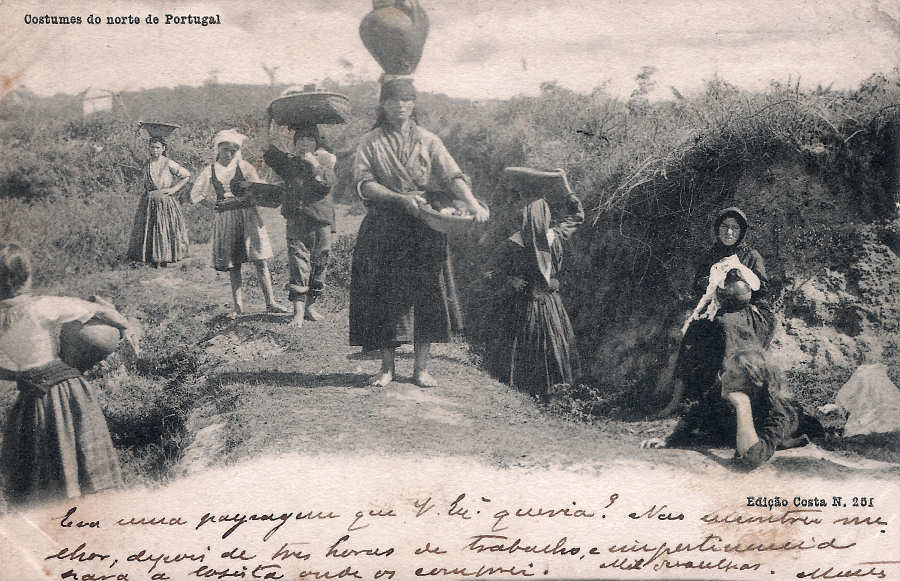 Costumes do norte de Portugal
Edição Costa N. 251
Era uma paysagem que V. Ex.ª queria? Não encontrei me
lhor, depois de tres horas de trabalho, e impertinencia
para a lojista onde os comprei.